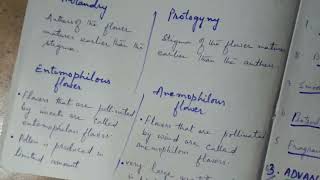 Protogyny
Anthers of the flower
matures earlier than the
stigma.
Stigma of the flower matures
earlier than the anthers.
Entomophilous
flower
Anemophilous
flower
• Flowers that are pollinated
by insects are called
entomophilous flowers.
• Pollen is produced in
limited amount
• Flowers that are pollinated
by wind are called
anemophilous flowers.
• very large
3. ADVAN